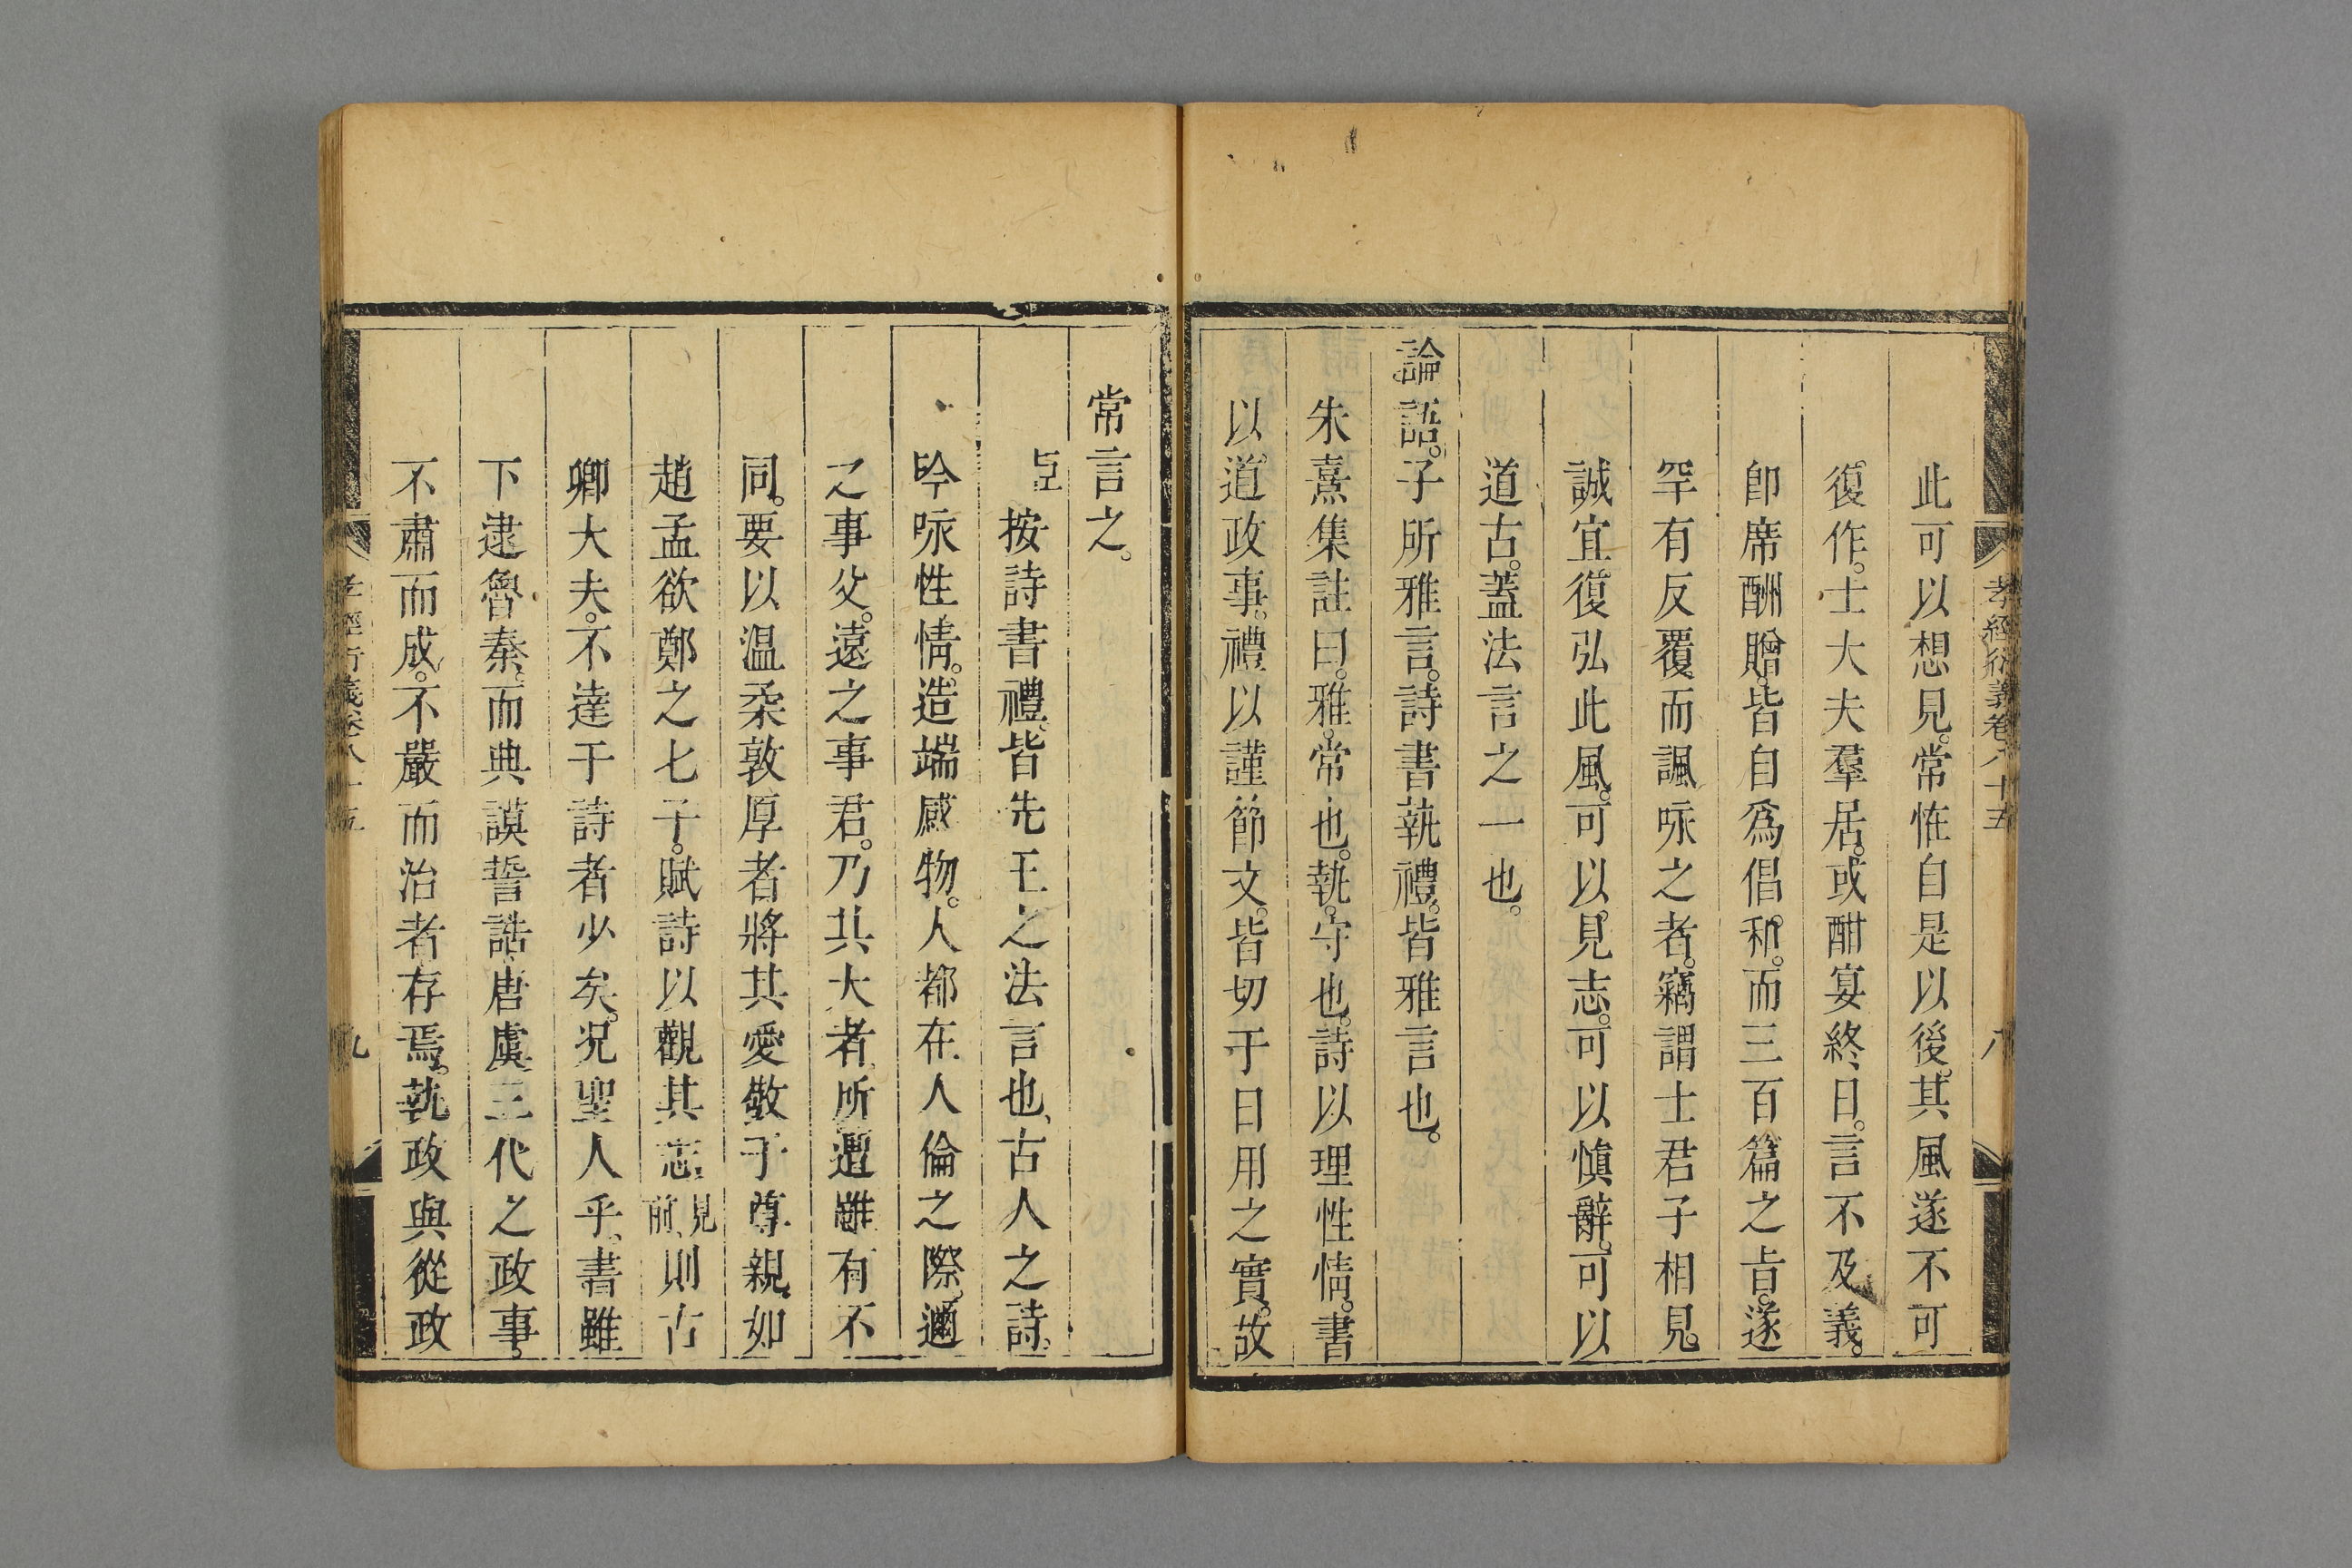 孝經衍義卷八十五
八
此可以想見。常恠自是以後。其風遂不可
復作。士大夫羣居。或酣宴終日。言不及義。
卽席酬贈。皆自爲倡和。而三百篇之旨。遂
罕有反覆而諷咏之者。竊謂士君子相見。
誠宜復弘此風。可以見志。可以愼辭。可以
道古。蓋法言之一也。
論語。子所雅言。詩書執禮。皆雅言也。
朱熹集註曰。雅。常也。執。守也。詩以理性情。書
以道政事。禮以謹節文。皆切于日用之實。故
常言之。
臣按詩書禮。皆先王之法言也、古人之詩。
吟咏性情。造端感物。人都在人倫之際。邇
之事父。遠之事君。乃其大者、所遭雖有不
同。要以温柔敦厚者將其愛敬于尊親。如
趙孟欲鄭之七子。賦詩以觀其志、見前、則古
卿大夫。不達于詩者少矣。况聖人乎、書雖
下逮魯秦。而典謨誓誥、唐虞三代之政事。
不肅而成。不嚴而治者存焉。執政與從政
孝經衍義卷八十五
九